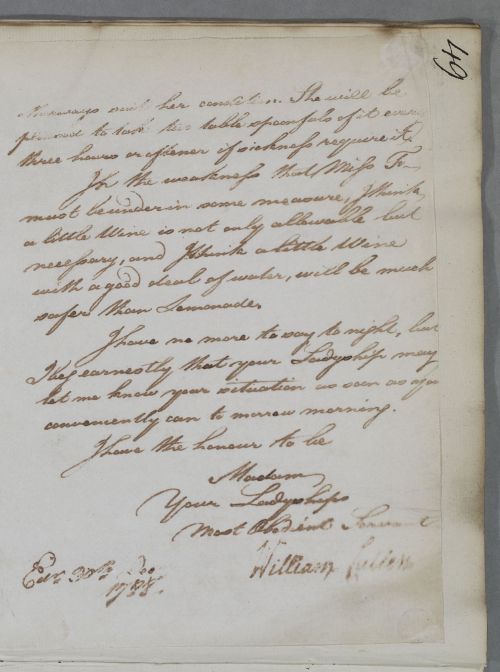 49
always suit her condition. She will be
pleased to take two table spoonfuls of it every
three hours or oftener if sickness require it.
In the weakness that Miss F—
must be under in some measure, I think
a little Wine is not only allowable but
necessary, and I think a little Wine
with a good deal of water, will be much
safer than Lemonade.
I have no more to say to night, but
I beg earnestly that your Ladyship may
let me know your situation as soon as you
conveniently can to morrow morning.
I have the honour to be
Madam
Your Ladyships
Most Obedient Servant
William Cullen
Edr.
1788.